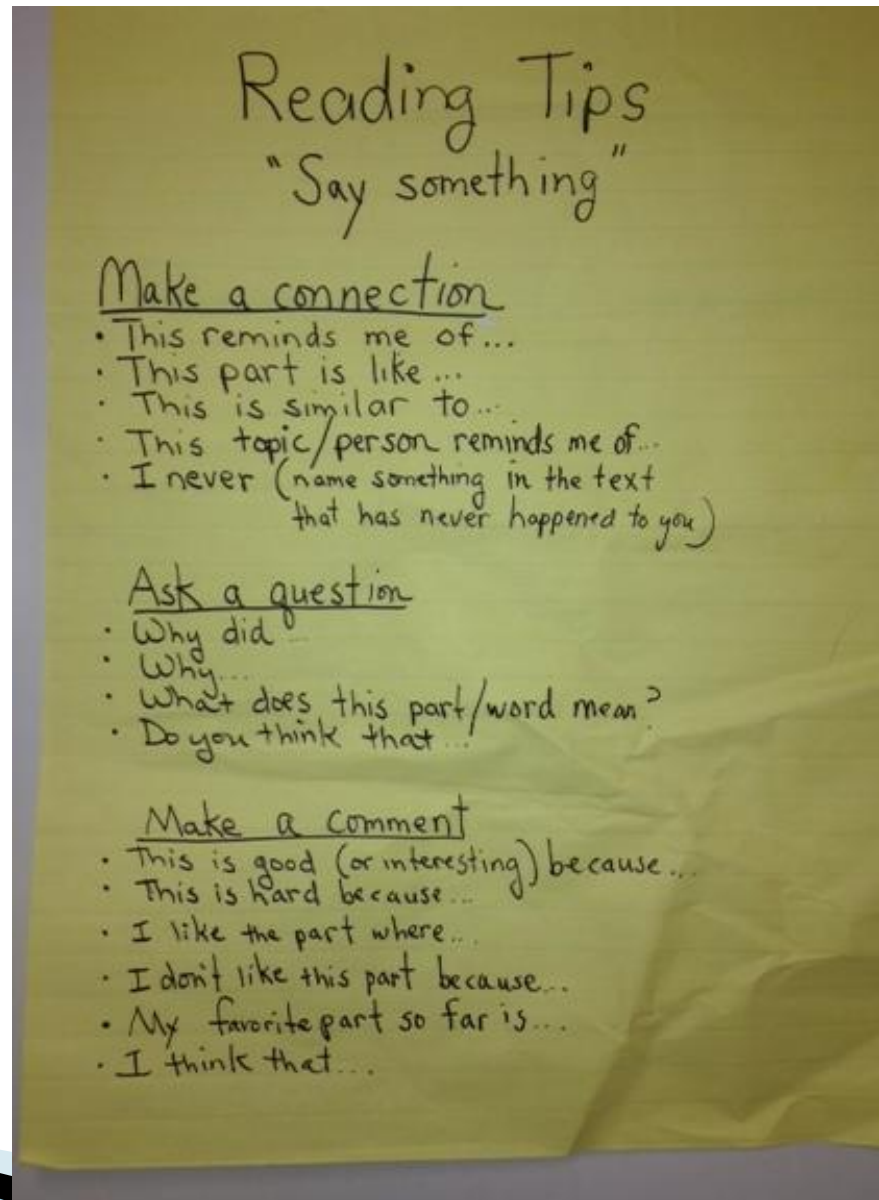 Reading Tips
"Say something"
Make a connection
• This reminds me of...
• This part is like...
• This is similar to...
• This topic/person reminds me of...
• I never (name something in the text
that has never happened to you)
Ask a question
• Why did...
• Why...
• What does this part/word mean?
• Do you think that...
Make a comment
• This is good (or interesting) because...
• This is hard because...
• I like the part where...
• I don't like this part because...
• My favorite part so far is...
• I think that...